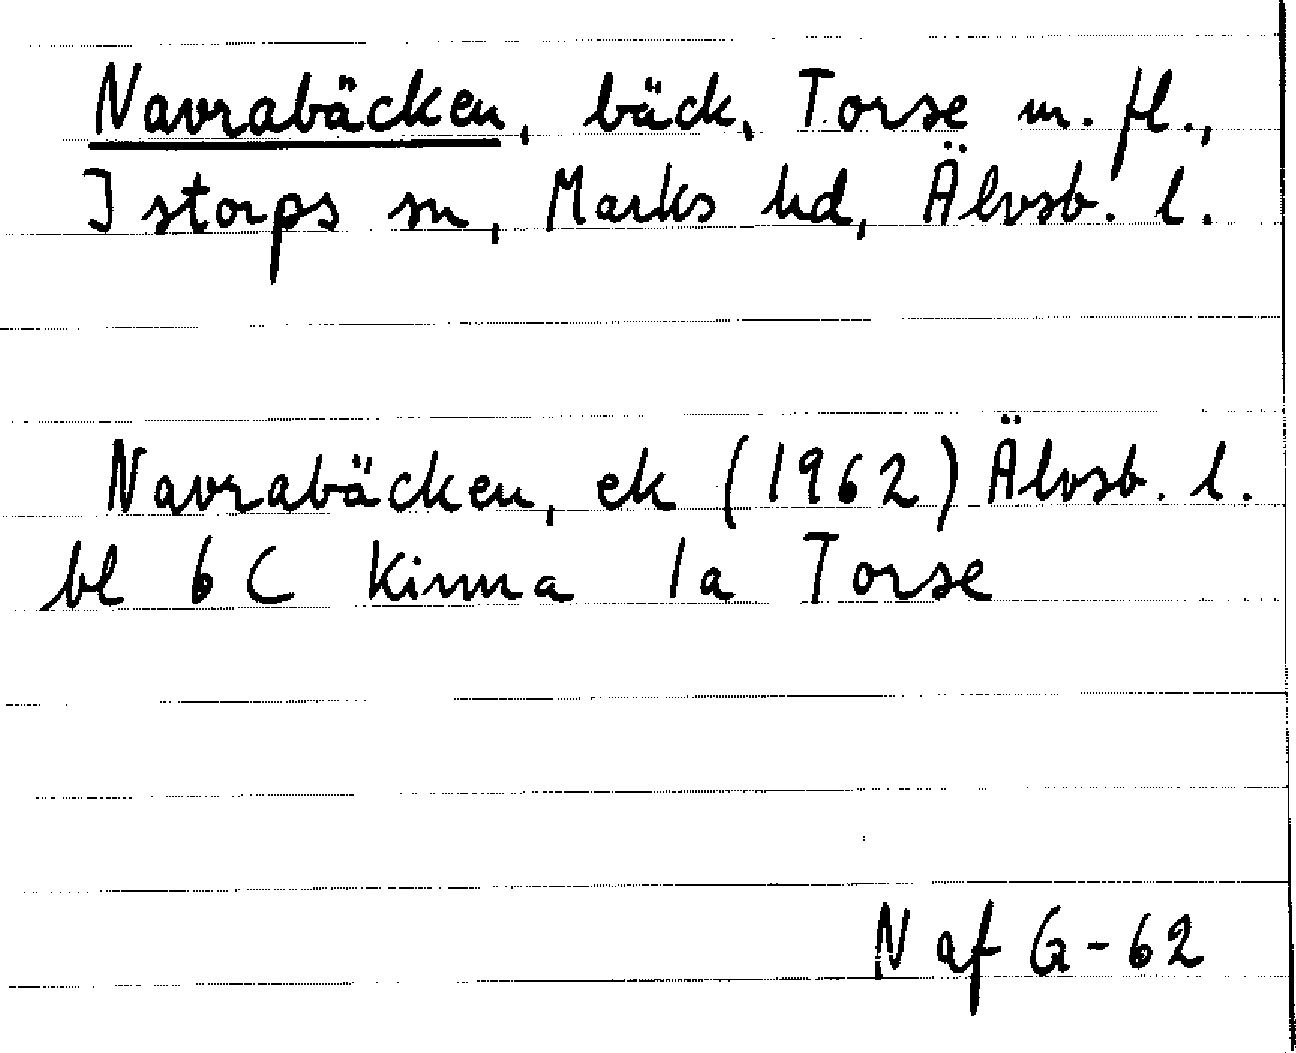 Navrabäcken, bäck, Torse m. fl.,
Istorps sn, Marks hd, Älvsb. l.
Navrabäcken, ek (1962) Älvsb. l.
bl 6 C Kinna 1a Torse
N af G-62